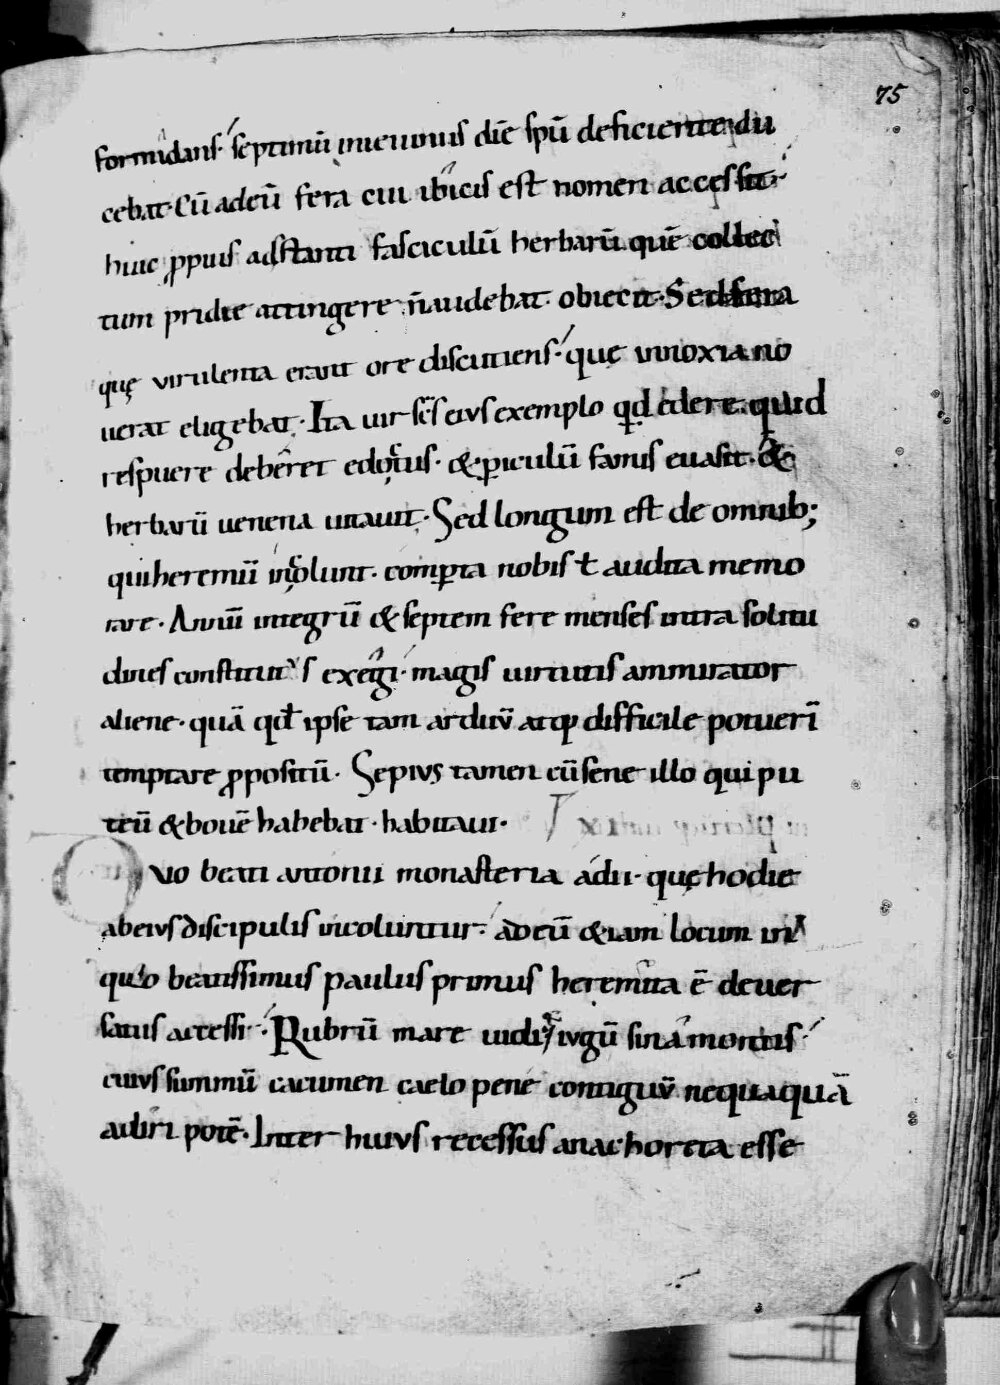 75
formidans· septimū inieiunus diē spū deficiente du
cebat· Cū adeū fera cui ibicis est nomen accessit·
huic ꝓpius adstanti fasciculū herbarū quē collec
tum pridie attingere n̄ audebat· obiecit· Sed fera
quę virulenta erant ore discutiens· quę innoxia no
uerat eligebat· Ita uir sc̄s eius exemplo qd̄ edere quid
respuere deberet edoctus· & ꝑiculū famis euasit· &
herbarū uenena uitauit· Sed longum est de omnib;
qui heremū incolunt· comꝑta nobis ł audita memo
rare· Annū integrū & septem fere menses intra solitu
dines constitutus exegi· magis uirtutis ammirator
aliene· quā qđ ipse tam arduū atq; difficile potuerī
temptare ꝓpositū· Sepius tamen cū sene illo qui pu
teū & bouē habebat· habitaui·
Duo beati antonii monasteria adii· quę hodie
ab eius discipulis incoluntur· ad eū etiam locum in
quo beatissimus paulus primus heremita ē deuer
satus accessi· Rubrū mare uidi· iugū sina montis·
cuius summū cacumen caelo pene contiguū nequaquā
adiri potē· Inter huius recessus anachoreta esse